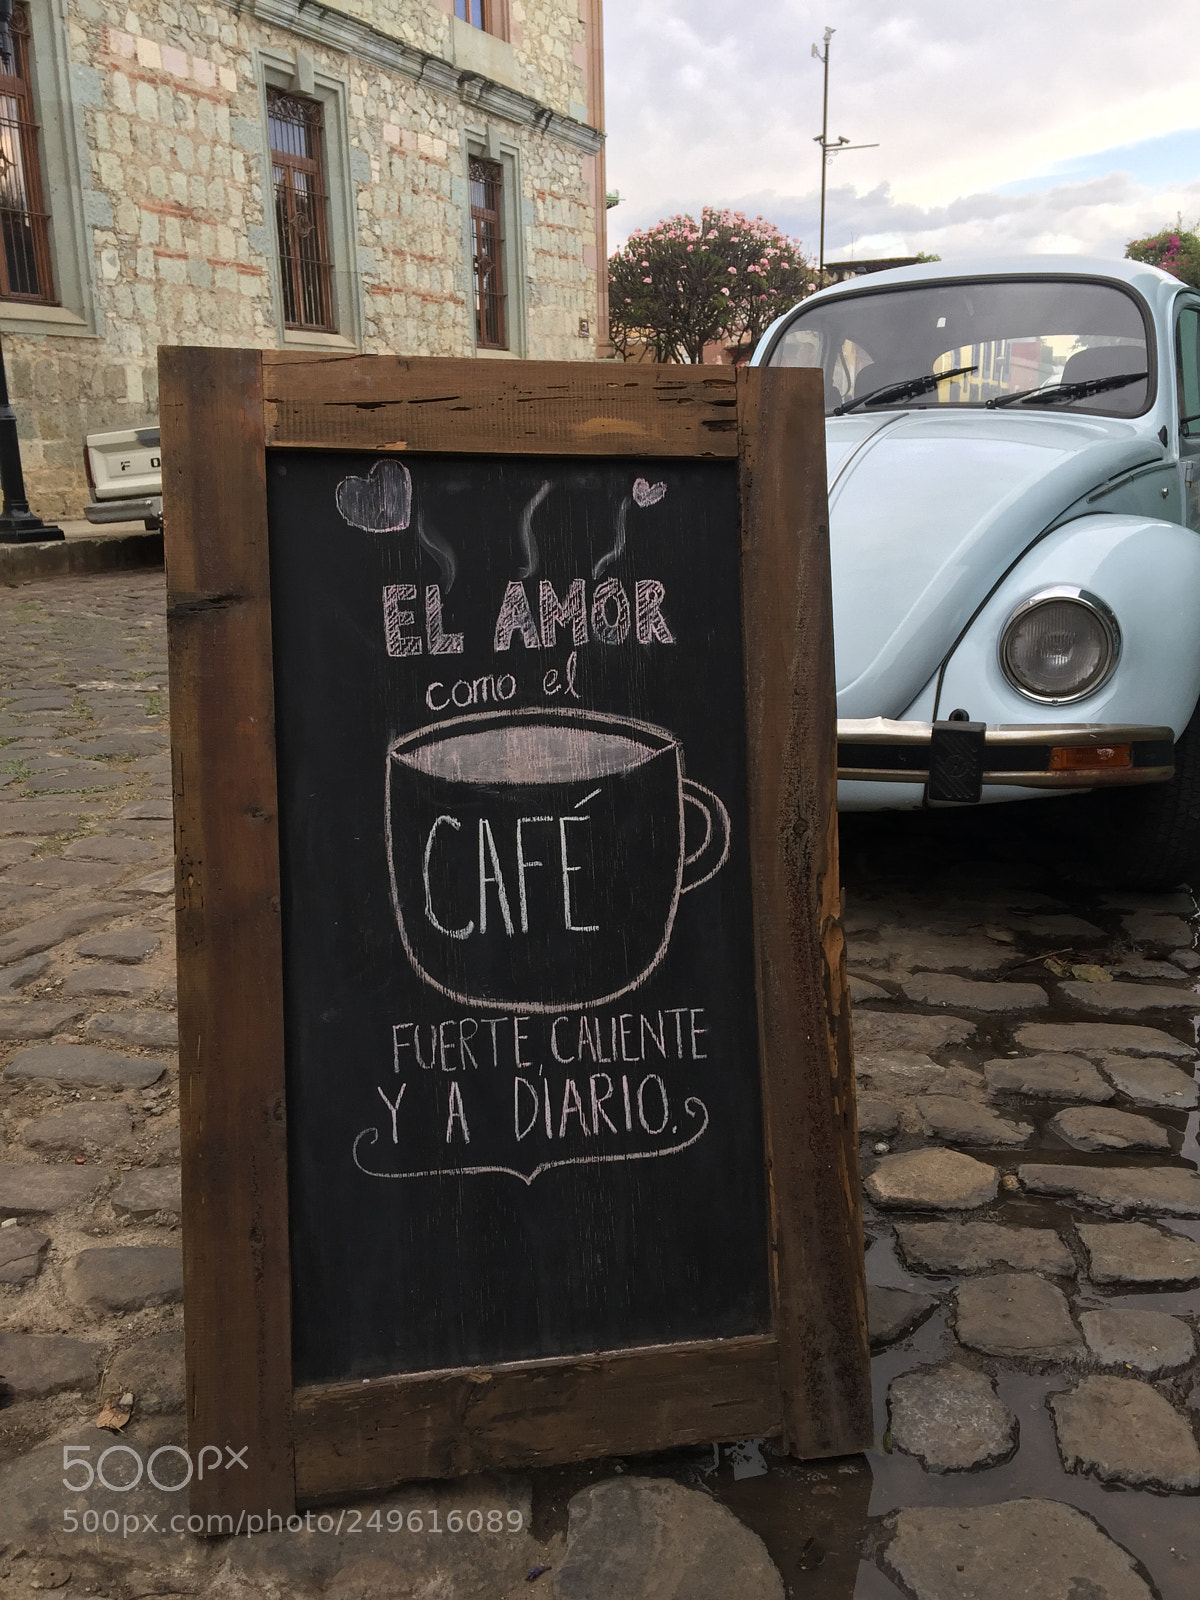 F O
EL AMOR
como el
CAFÉ
FUERTE, CALIENTE
Y A DIARIO.
500px
500px.com/photo/249616089